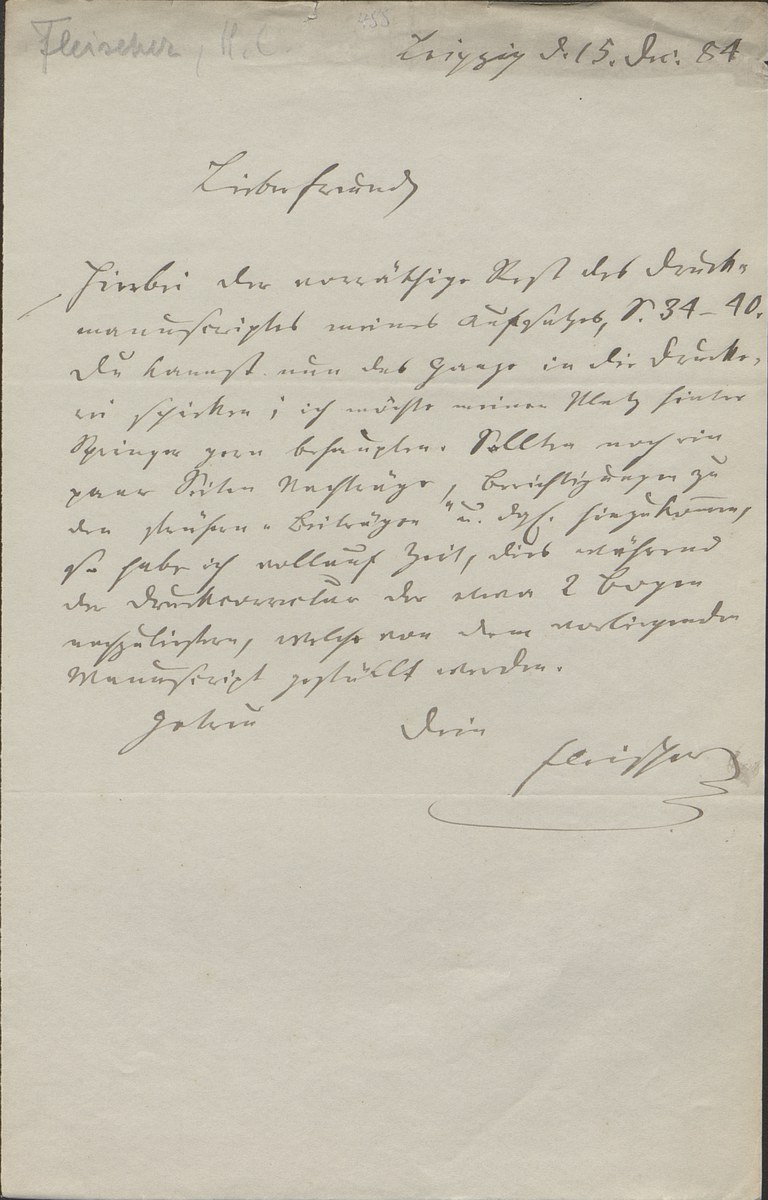 Fleischer, H.
Leipzig d. 15. Dec. 84
Lieber Freund,
Hierbei der vorräthige Rest des Druck-
manuscriptes meines Aufsatzes, S. 34 – 40.
Du kannst nun das Ganze in die Drucke-
rei schicken; ich möchte meinen Platz hinter
Springer gern behaupten. Sollten noch ein
paar Seiten Nachträge, Berichtigungen zu
den frühern „Beiträgen“ u. dgl. hinzukommen,
so habe ich vollauf Zeit, dies während
der Druckcorrectur der etwa 2 Bogen
nachzuliefern, welche von dem vorliegenden
Manuscript gefüllt werden.
Getreu Dein
Fleischer